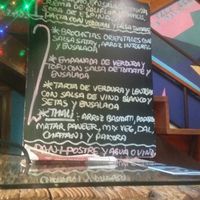 PASTA CON VERDURAS Y SALSA TOMATE
* BROCHETAS ORIENTALES CON
SALSA SATAY, ARROZ INTEGRAL
Y ENSALADA
* EMPANADA DE VERDURA Y
TOFU CON SALSA DE TOMATE Y
ENSALADA
* TARTA DE VERDURA Y
CON SALSA DE VINO BLANCO Y
SETAS Y ENSALADA
* THALI: ARROZ BASMATI,
MATAR PANEER, MIX VEG, DAL,
CHAPATI Y PAKORA
PAN, POSTRE Y AGUA O VINO